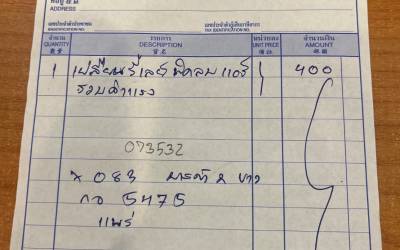 ที่อยู่ 住址
ADDRESS
เลขประจำตัวประชาชน เลขประจำตัวผู้เสียภาษีอากร
IDENTIFICATION NO. TAX IDENTIFICATION NO.
จำนวน รายการ หน่วยละ จำนวนเงิน
QUANTITY DESCRIPTION UNIT PRICE AMOUNT
1 เปลี่ยนรีเลย์ พัดลม แอร์ 400
รวมค่าแรง
073532
x 083
กอ 5475
แพร่